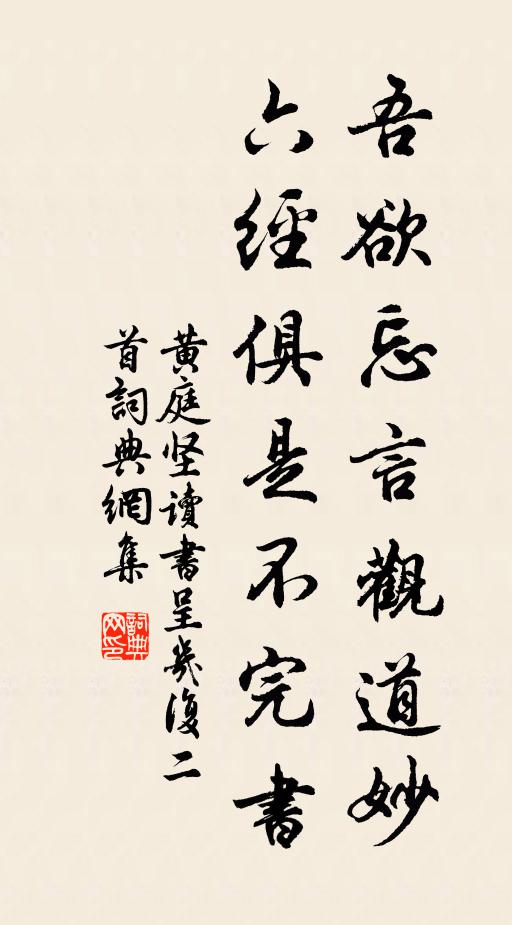 吾欲忘言觀道妙
六經俱是不完書
黄庭坚讀書呈幾復二
首詞典網集
詞典
网印